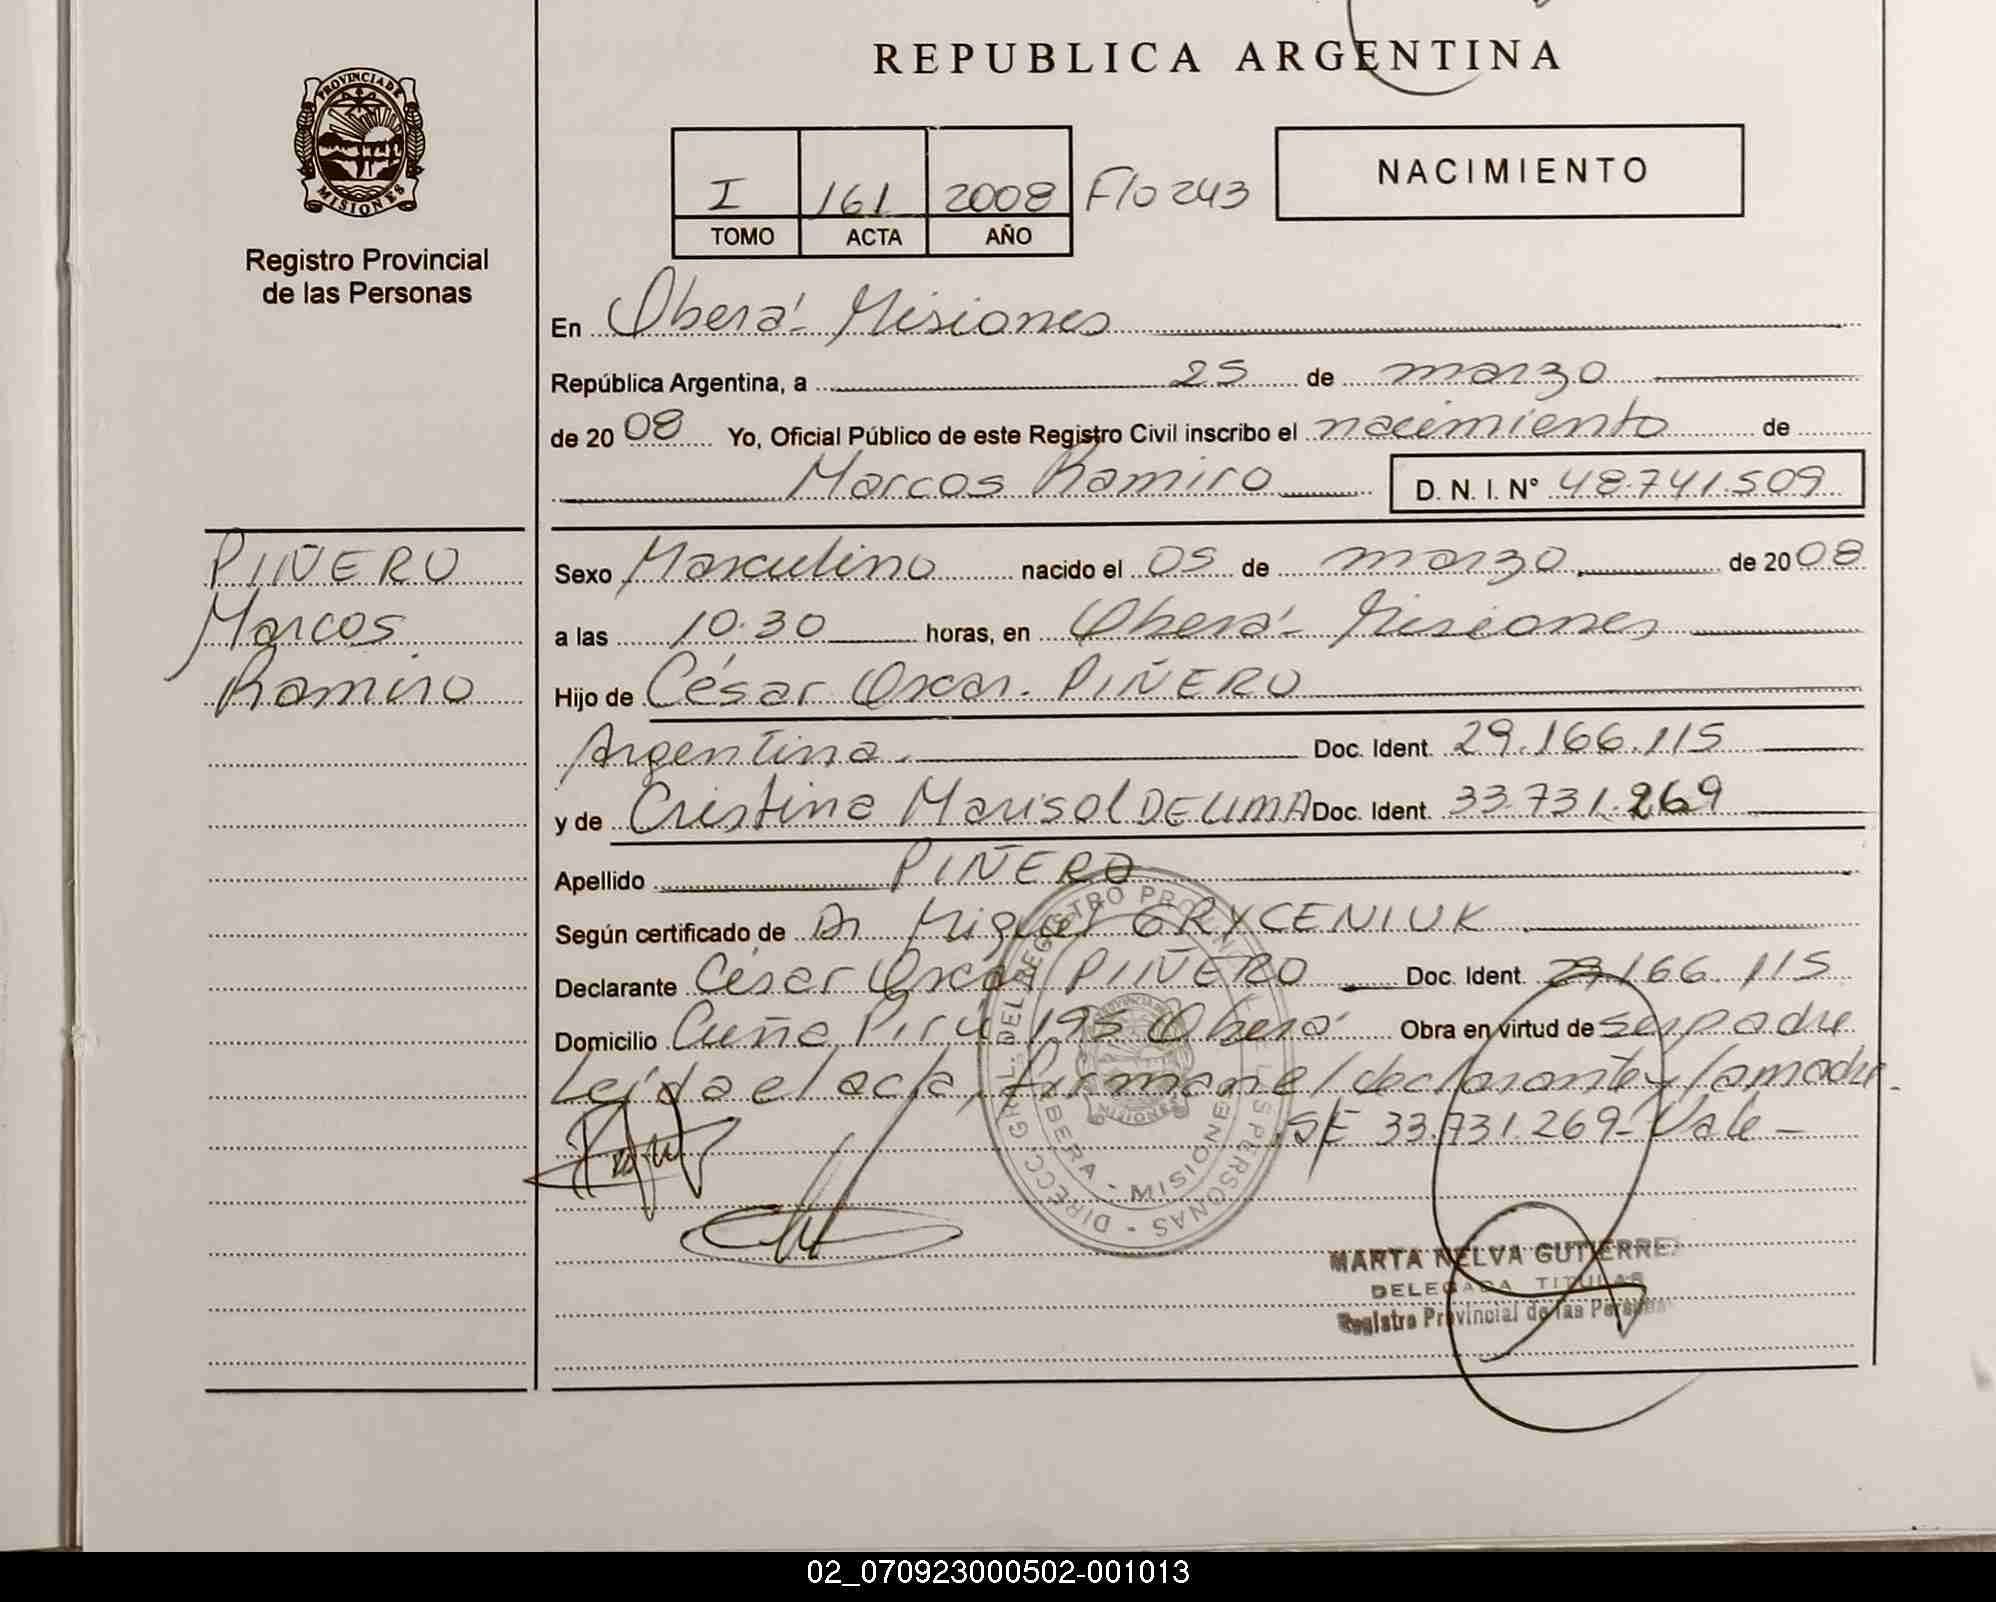 REPUBLICA ARGENTINA
PROVINCIA DE
MISIONES
Registro Provincial
de las Personas
I 161 2008 Fº 243
TOMO ACTA AÑO
NACIMIENTO
En Oberá - Misiones
República Argentina, a 25 de marzo
de 2008 Yo, Oficial Público de este Registro Civil inscribo el nacimiento de
Marcos Ramiro D. N. I. Nº 48.741.509
PIÑERO
Marcos
Ramiro
Sexo Masculino nacido el 05 de marzo de 2008
a las 10.30 horas, en Oberá - Misiones
Hijo de César Oscar PIÑERO
Argentina Doc. Ident. 29.166.115
y de Cristina Marisol DE LIMA Doc. Ident. 33.731.269
Apellido PIÑERO
Según certificado de Dr Miguel GRYCENIUK
Declarante César Oscar PIÑERO Doc. Ident. 29.166.115
Domicilio Cuña Pirú 195 Oberá Obra en virtud de ser padre
Leída el acta, firman el declarante y la madre.
S/E 33.731.269 - Vale -
DIRECC. GRAL. DEL REGISTRO PROVINCIAL DE LAS PERSONAS
OBERA - MISIONES
MARTA NELVA GUTIERREZ
DELEGADA TITULAR
Registro Provincial de las Personas
02_070923000502-001013